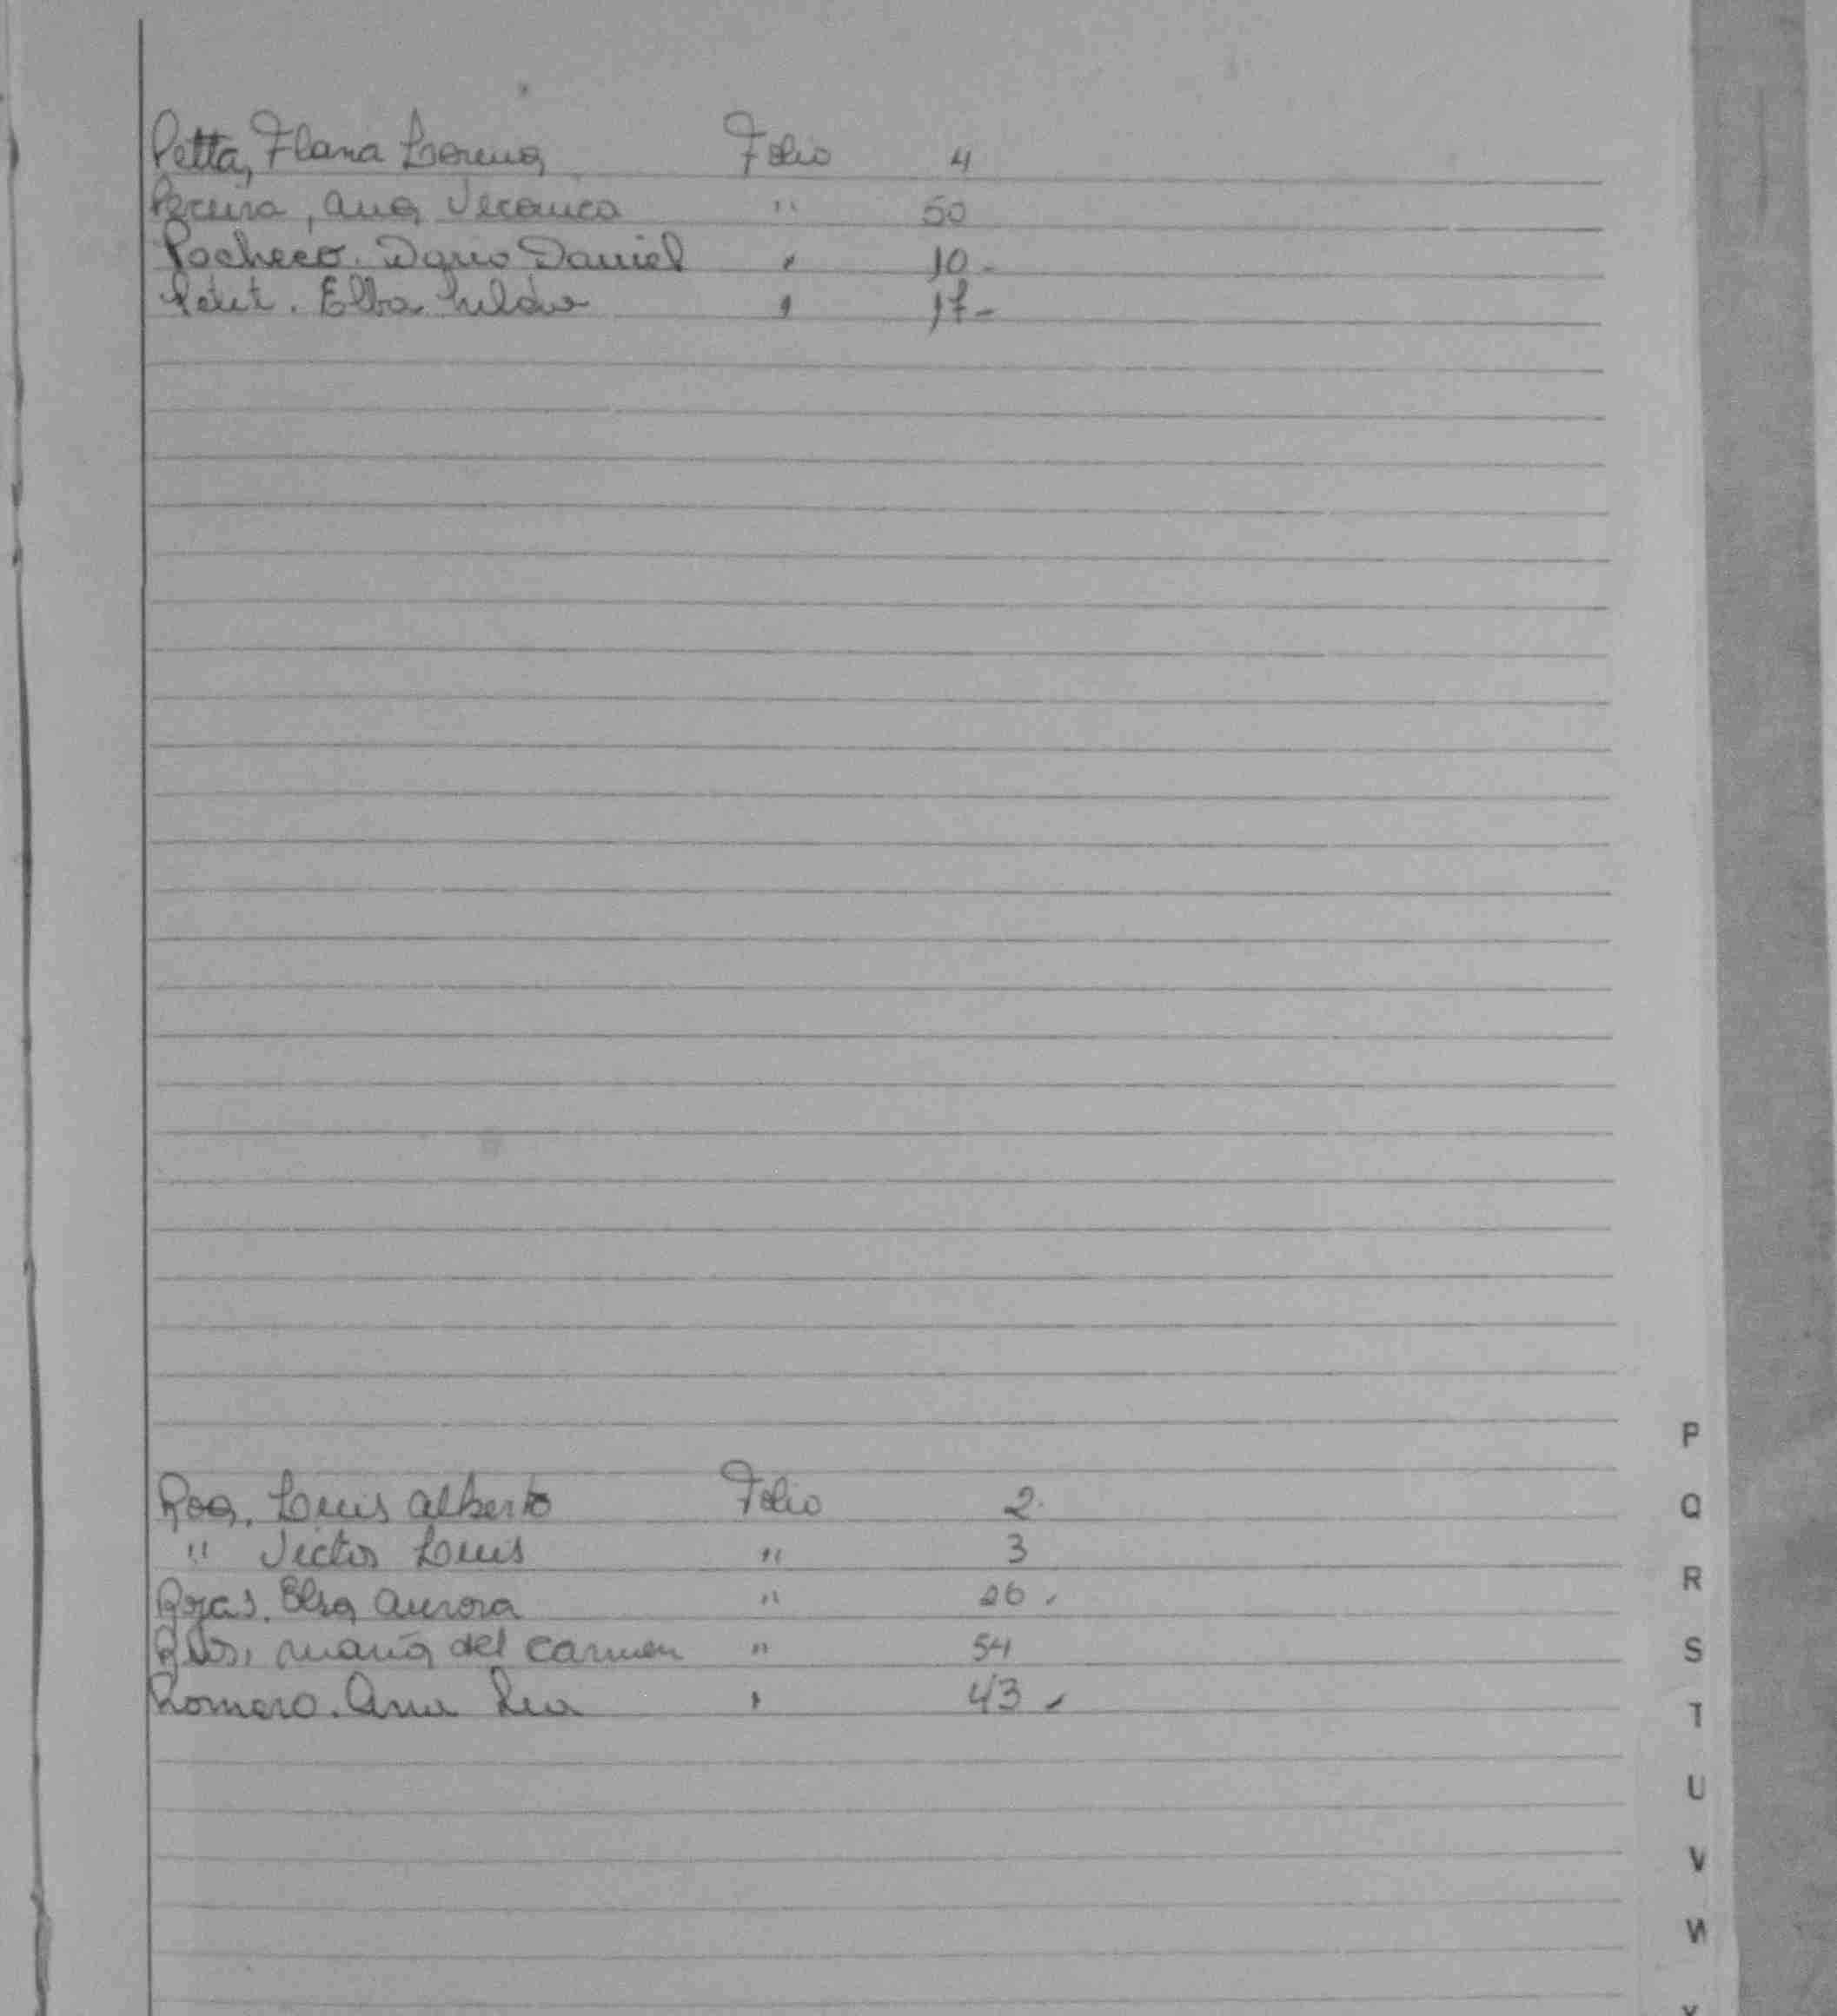 Petta, Flana Lorena Folio 4
Pereira, Ana Veronica " 50
Pacheco. Dario Daniel " 10-
Petit. Elba " 17-
P
Roa, Luis Alberto Folio 2.
Q
" Victor Luis " 3
R
Rojas. Elsa Aurora " 26.
S
Rios, Maria del Carmen " 54
T
Romero. Ana Lia " 43-
U
V
W